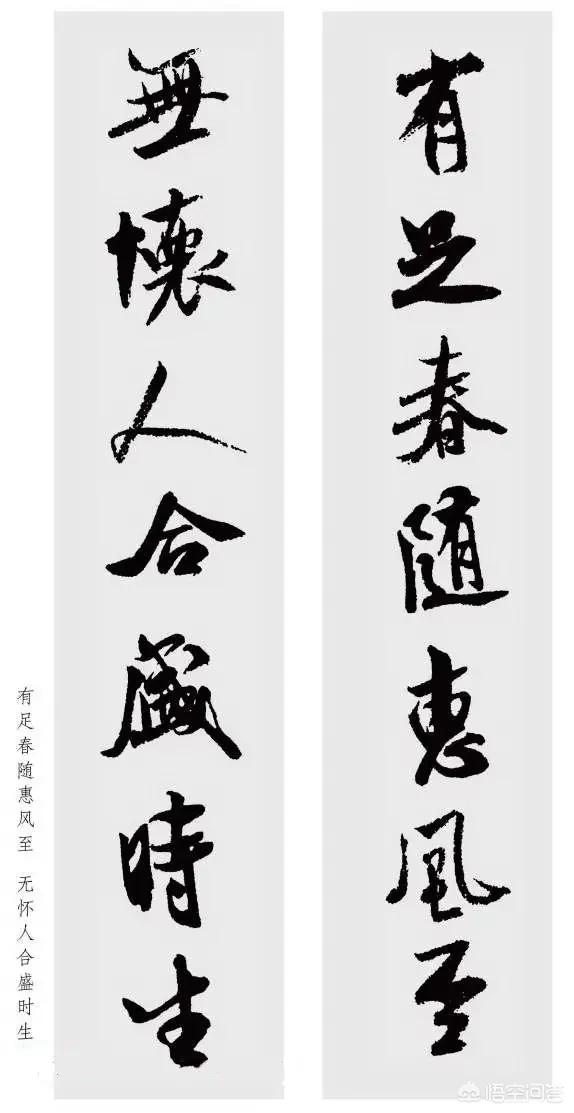 有足春随惠風至
無懷人合盛時生
有足春随惠风至 无怀人合盛时生
悟空问答